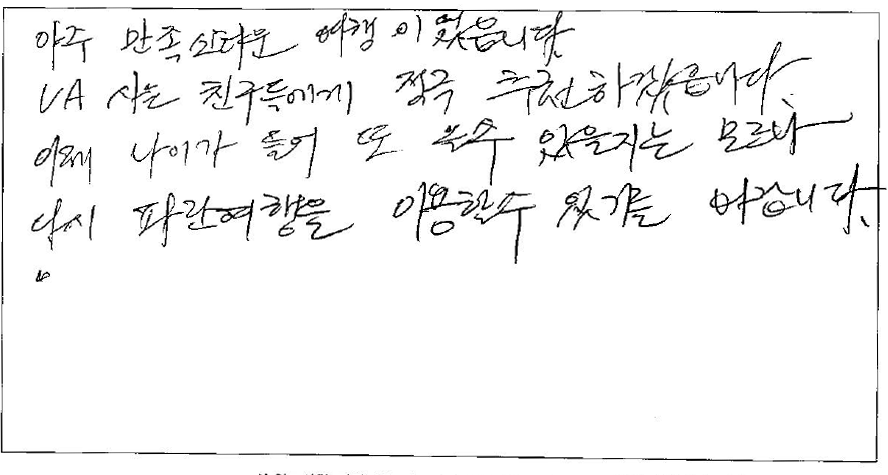 아주 만족스러운 여행 이었습니다
VA 사는 친구들에게 적극 추천하겠습니다.
이제 나이가 들어 또 올수 있을지는 모르나
다시 파란여행을 이용할수 있기를 바랍니다.